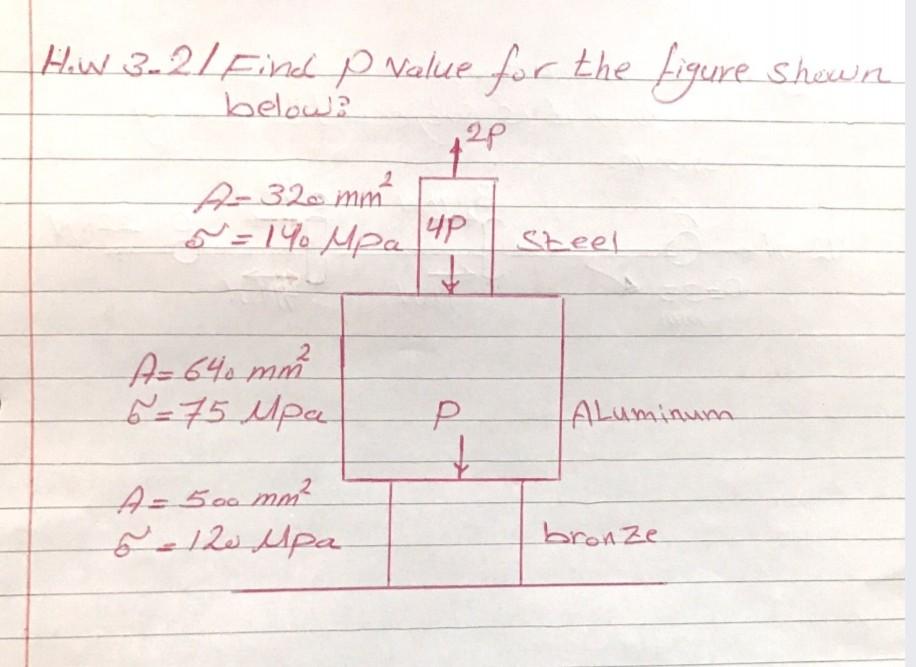 H.W 3-2/ Find P value for the figure shown
below?
2P
A= 320 mm²
σ = 140 Mpa
4P
Steel
A= 640 mm²
σ = 75 Mpa
P
ALuminum
A = 500 mm²
σ = 120 Mpa
bronze